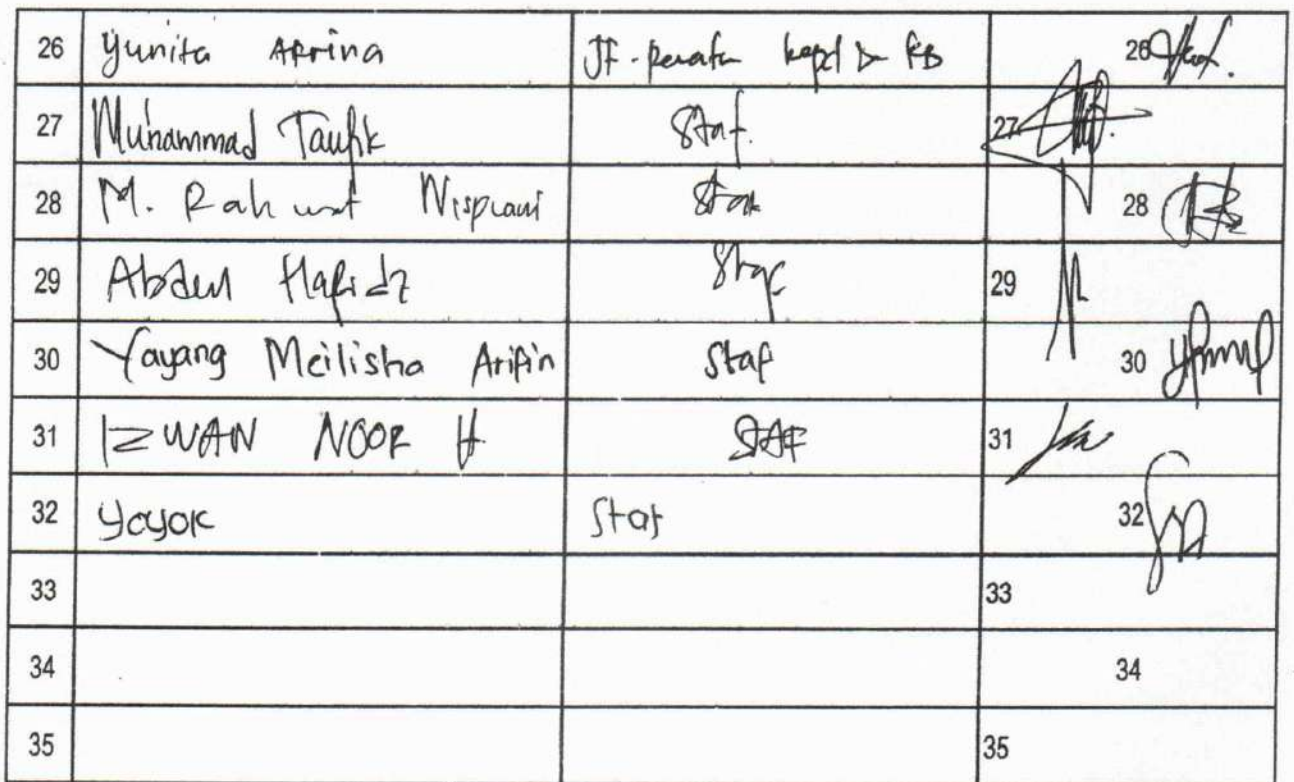 26 Yunita Aprina JF. kepd KB 26
27 Muhammad Taufik Staf. 27
28 M. Rahmat Staf 28
29 Abdul Hafidz Staf 29
30 Yayang Meilisha Arifin Staf 30
31 IZWAN NOOR H STAF 31
32 Yoyok Staf 32
33 33
34 34
35 35